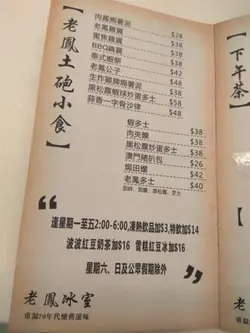 【老鳳土砲小食】
肉醬焗薯泥 $28
老鳳雞翼 $38
蜜焦雞翼 $38
BBQ雞翼 $38
泰式蝦餅 $38
老鳳公子 $42
生炸雞髀焗薯泥 $48
黑松露蝦球炒蛋多士 $58
蒜香一字骨沙律 $48
蝦多士 $38
肉夾饃 $38
黑松露炒蛋多士 $38
澳門豬扒包 $26
焗田螺 $42
老鳳多士 $40
逢星期一至五2:00-6:00,凍熱飲品加$3,特飲加$14
波波紅豆奶茶加$16 雪糕紅豆冰加$16
星期六、日及公眾假期除外
老鳳冰室
重溫70年代懷舊滋味
【下午茶】